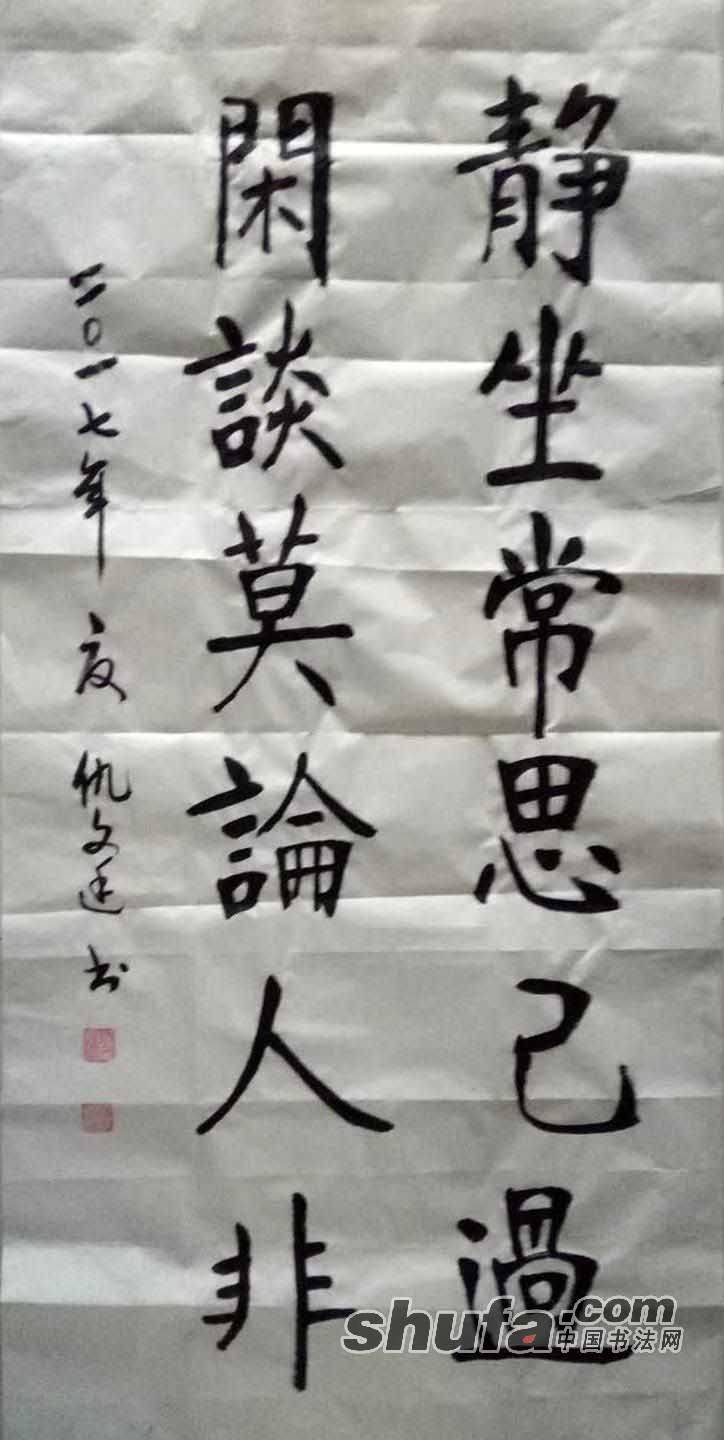 静坐常思己過
閑談莫論人非
二〇一七年夏 仇文廷书
shufa.com
中国书法网